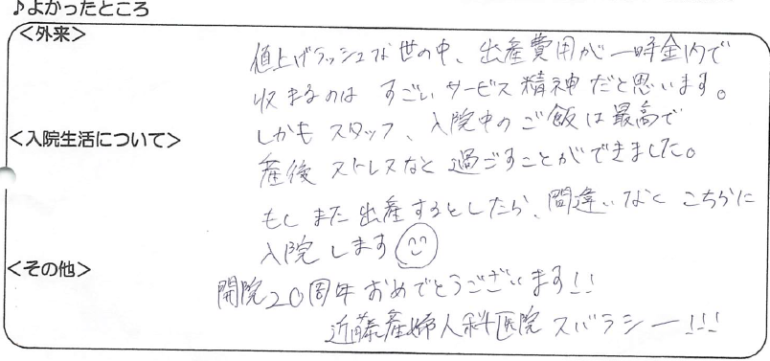 ♪よかったところ
<外来>
値上げラッシュな世の中、出産費用が一時金内で
収まるのは すごいサービス精神だと思います。
<入院生活について>
しかも スタッフ、入院中のご飯は最高で
産後 ストレスなく 過ごすことができました。
もし また 出産するとしたら、間違いなく こちらに
入院します
<その他>
開院20周年 おめでとうございます!!
近藤産婦人科医院 スバラシー!!!